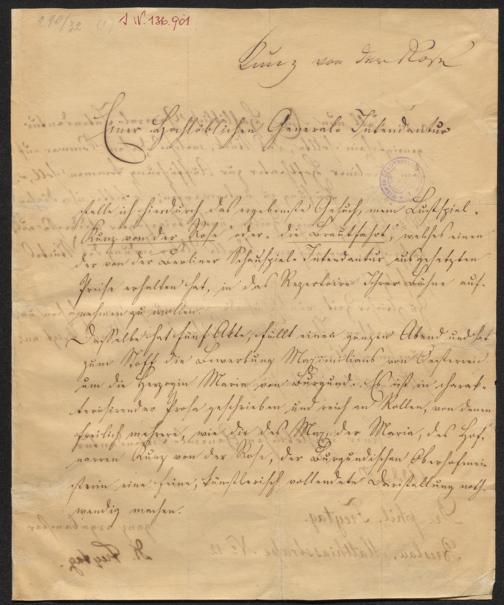 290/32 (1) I N. 136.901
Kunz von der Rose
Einer Hochlöblichen General-Intendantur
stelle ich hierdurch das ergebenste Gesuch, mein Lustspiel:
„Kunz von der Rose oder: die Brautfahrt", welches einen
der von der Berliner Schauspiel-Intendantur ausgesetzten
Preise erhalten hat, in das Repertoire Ihrer Bühne auf-
nehmen zu wollen.
Dasselbe hat fünf Akte, füllt einen ganzen Abend und hat
zum Stoff die Bewerbung Maximilians von Oesterreich
um die Herzogin Maria von Burgund. Es ist in charak-
terisirender Prosa geschrieben und reich an Rollen, von denen
freilich mehrere, wie die des Max, der Maria, des Hof-
narren Kunz von der Rose, der Burgundischen Oberhofmei-
sterin eine feine, künstlerisch vollendete Darstellung noth-
wendig machen.